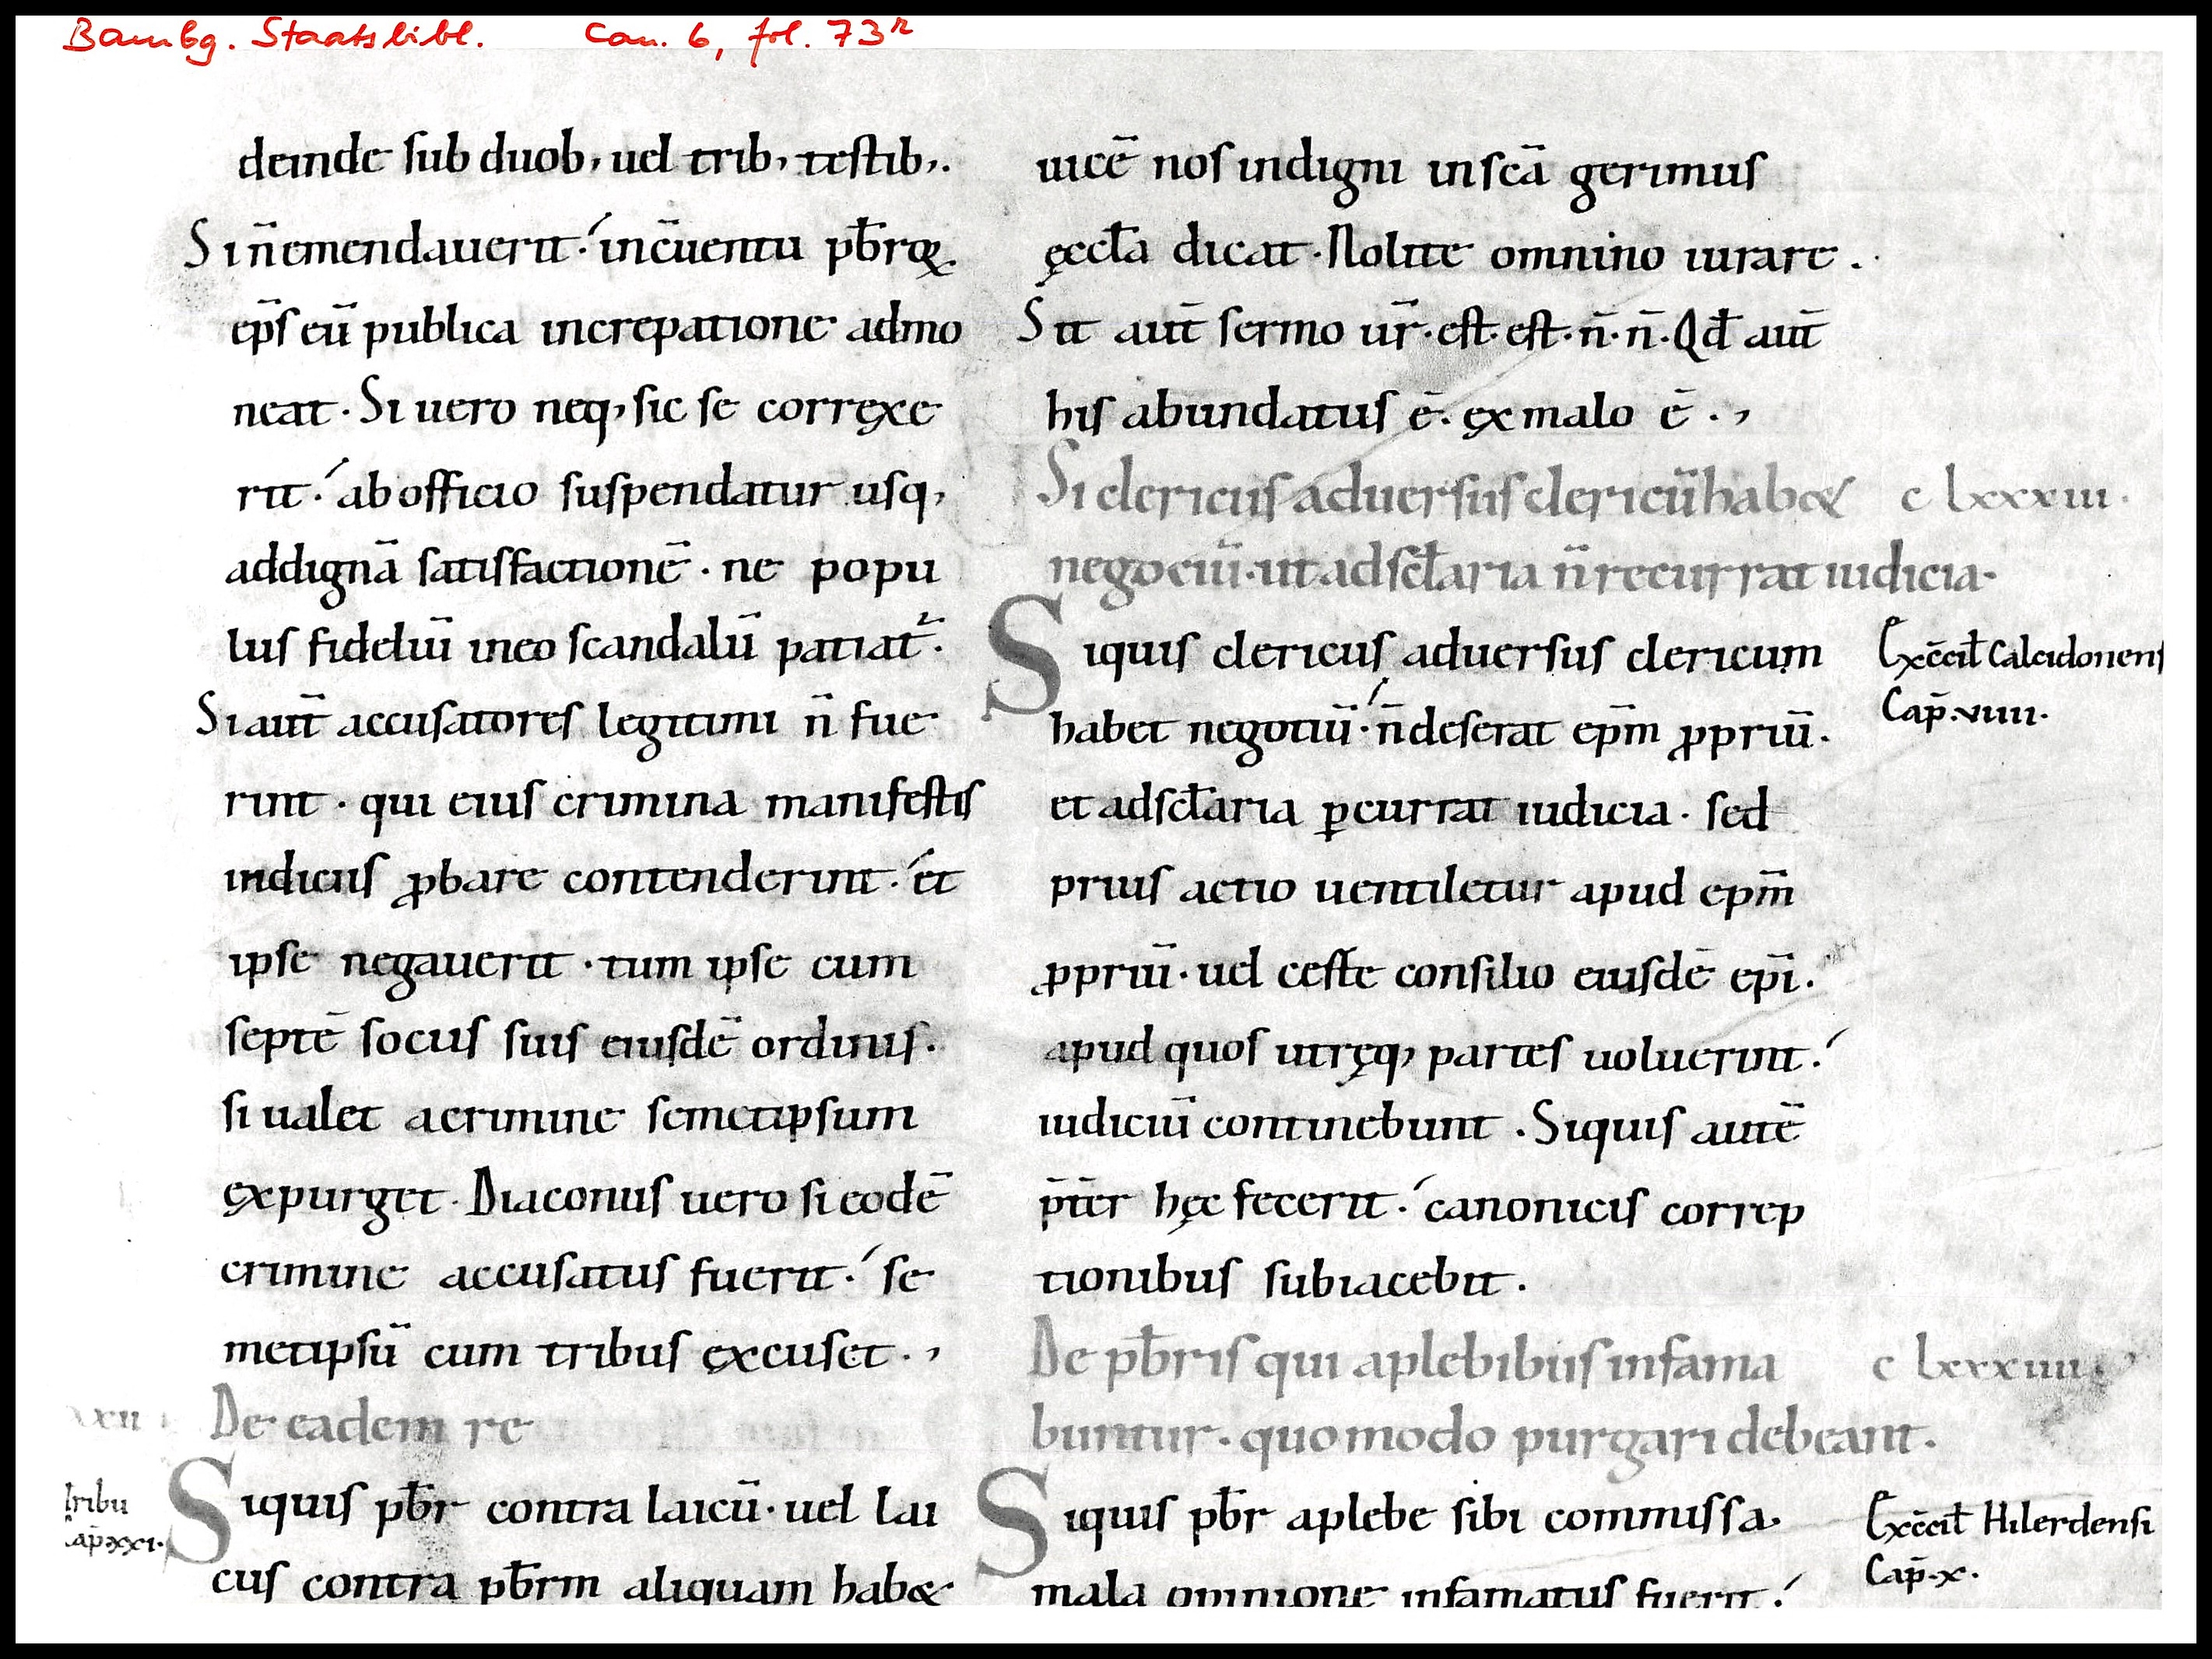 Bambg. Staatsbibl. Can. 6, fol. 73r
deinde sub duob; uel trib; testib;.
Si n̄ emendauerit. in c̄uentu pb̄roꝝ
ep̄s eū publica increpatione admo
neat. Si uero neq; sic se corręxe
rit. ab officio suspendatur usq;
ad dignā satisfactionē. ne popu
lus fideliū in eo scandalū patiat᷑.
Si aut̄ accusatores legitimi n̄ fue
rint. qui eius crimina manifestis
indiciis ꝓbare contenderint. et
ipse negauerit. tum ipse cum
septē sociis suis eiusdē ordinis.
si ualet a crimine semetipsum
ęxpurget. Diaconus uero si eodē
crimine accusatus fuerit. se
metipsū cum tribus ęxcuset.,
xxii
De eadem re
tribu
ap̄ xxi.
Siquis pb̄r contra laicū. uel lai
cus contra pb̄rm aliquam hab&
uicē nos indigni in sc̄a gerimus
ęccła dicat. Nolite omnino iurare.
Sit aut̄ sermo ur̄. est. est. n̄. n̄. Qđ aut̄
his abundatus ē. ęx malo ē.,
Si clericus aduersus clericū hab& c lxxxiii.
negociū. ut ad scłaria n̄ recurrat iudicia.
Siquis clericus aduersus clericum
habet negotiū. n̄ deserat ep̄m ꝓpriū.
Ex c̄cił Calcidonens
Cap̄. viiii.
et ad scłaria ꝑcurrat iudicia. sed
prius actio uentiletur apud ep̄m
ꝓpriū. uel ceste consilio eiusdē ep̄i.
apud quos utręq; partes uoluerint.
iudiciū continebunt. Siquis autē
p̄t̄er hęc fecerit. canonicis correp
tionibus subiacebit.
De pb̄ris qui a plebibus infama c lxxxiiii
buntur. quomodo purgari debeant.
Siquis pb̄r a plebe sibi commissa.
mala opinione infamatus fuerit.
Ex c̄cił Hilerdensi
Cap̄. x.